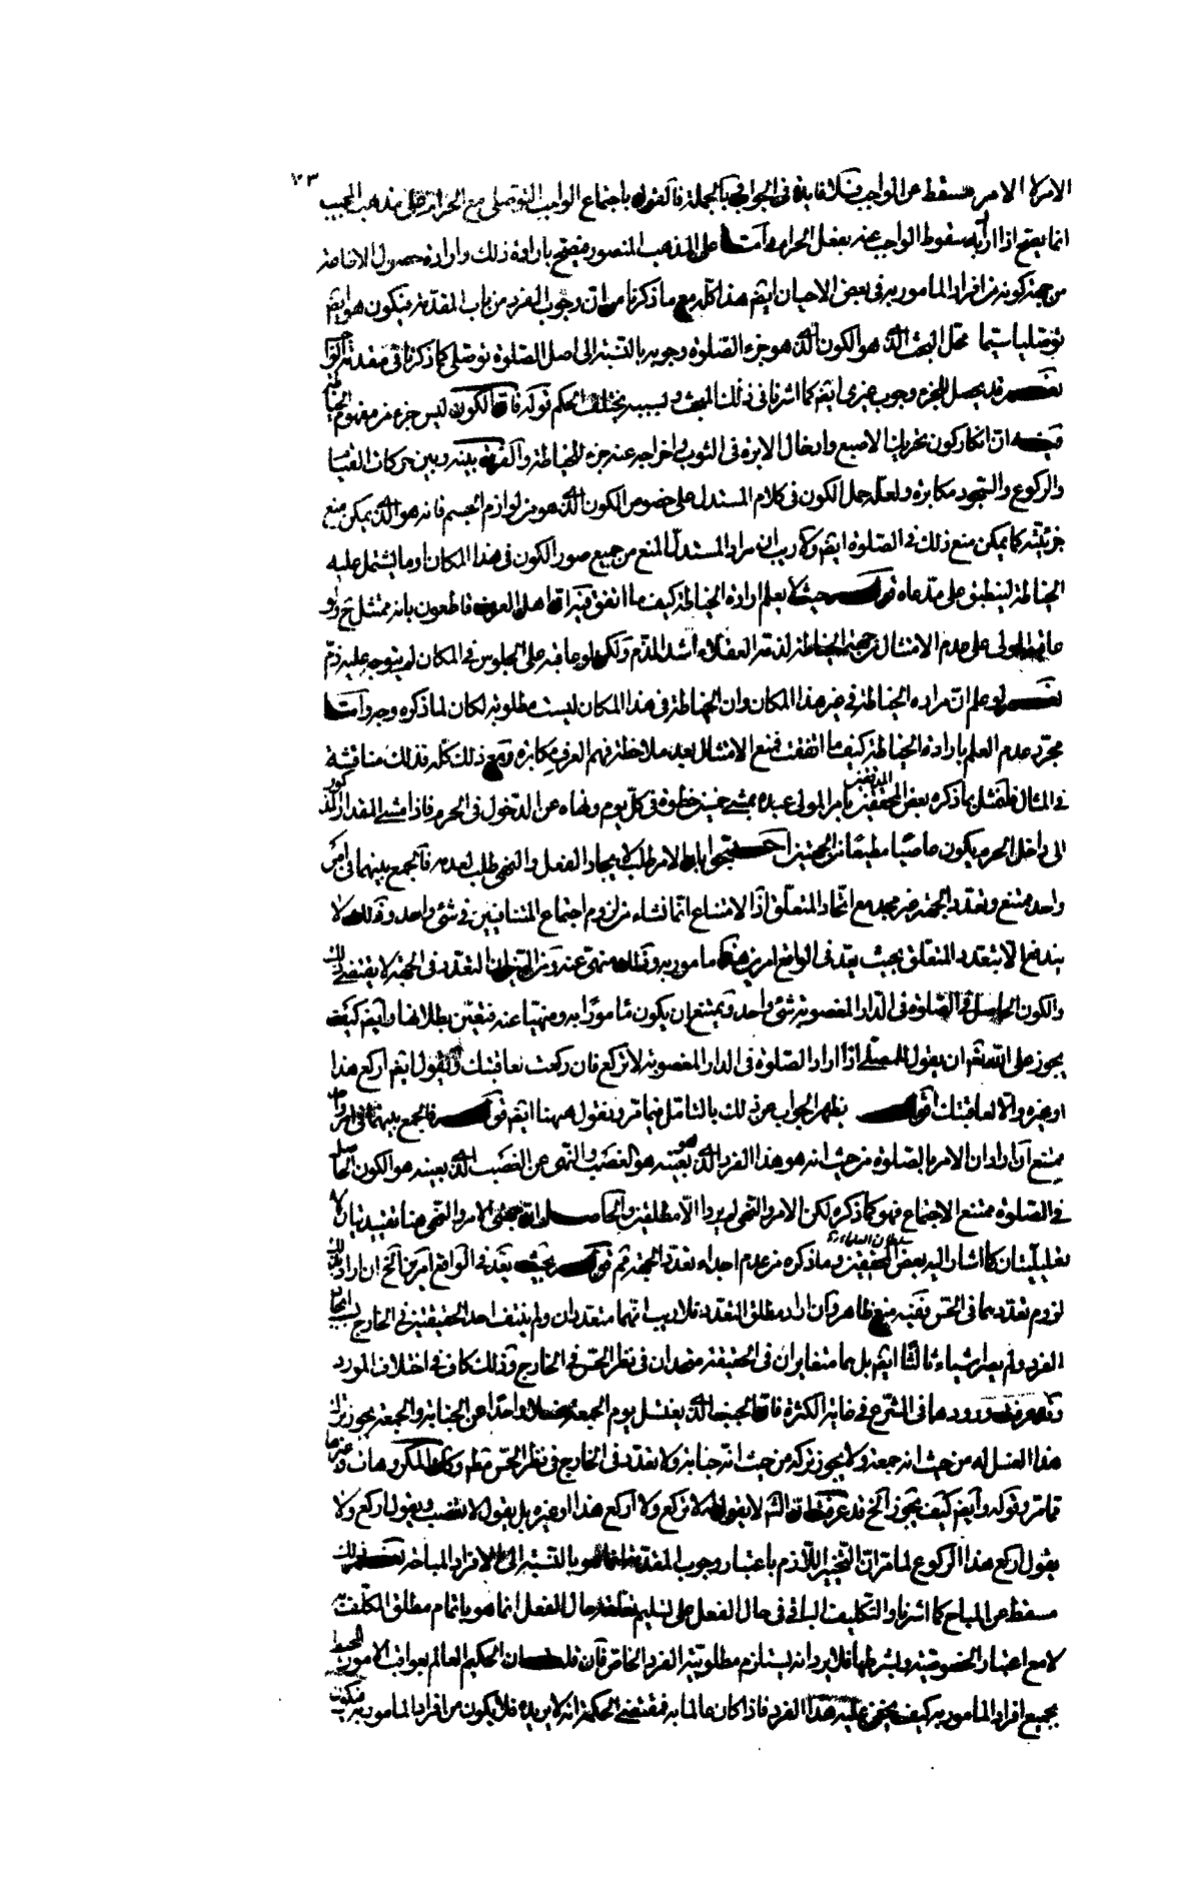 ٧٣
الامر لا الامر مسقط عن الواجب فلا فايدة فى الجواب وبالجملة فالقول باجتماع الواجب التوصلى مع الحرام على مذهب المجيب
انما يصح اذا اراد به سقوط الواجب عنه بفعل الحرام واما على المذهب المنصور فيصح بارادة ذلك وارادة حصول الاطاعة
من جهة كونه من افراد المامور به فى بعض الاحيان ايضا هذا كله مع ما ذكرنا من ان وجوب الفرد من باب المقدمة فيكون هو ايضا
توصليا سيما محل البحث الذى هو الكون الذى هو جزء الصلوة وجوبه بالنسبة الى اصل الصلوة توصلى كما ذكرنا فى مقدمة الواجب
نعم قد يحصل للجزء وجوب غيرى ايضا كما اشرنا فى ذلك المبحث وبسببه يختلف الحكم قوله فان الكون ليس جزء من مفهوم الخياطة
فيه ان انكار كون تحريك الاصبع وادخال الابرة فى الثوب واخراجه عنه جزء للخياطة والفرق بينه وبين حركات القيام
والركوع والسجود مكابرة ولعله حمل الكون فى كلام المستدل على خصوص الكون الذى هو من لوازم الجسم فانه هو الذى يمكن منع
جزئيته كما يمكن منع ذلك فى الصلوة ايضا ولا ريب ان مراد المستدل المنع من جميع صور الكون فى هذا المكان او ما يشتمل عليه
الخياطة لينطبق على مدعاه قوله حيث لا يعلم ارادة الخياطة كيف ما اتفق فيه ان اهل العرف قاطعون بانه ممتثل ح ولو
عاقبه المولى على عدم الامتثال من جهة الخياطة لذمه العقلاء اشد الذم ولكن لو عاقبه على الجلوس فى المكان لم يتوجه عليه ذم
نعم لو علم ان مراده الخياطة فى غير هذا المكان وان الخياطة فى هذا المكان ليست مطلوبة لكان لما ذكره وجه واما
مجرد عدم العلم بارادة الخياطة كيف ما اتفقت فمنع الامتثال بعد ملاحظة فهم العرف مكابرة ومع ذلك كله فذلك مناقشة
فى المثال فلنمثل بما ذكره بعض المحققين المدققين بامر المولى عبده بمشى خمسين خطوة فى كل يوم ونهاه عن الدخول فى الحرم فاذا مشى المقدار المذكور
الى داخل الحرم يكون عاصيا مطيعا من الجهتين احتجوا بان الامر طلب لايجاد الفعل والنهى طلب لعدمه فالجمع بينهما فى امر
واحد ممتنع وتعدد الجهة غير مجد مع اتحاد المتعلق اذ الامتناع انما نشاء من لزوم اجتماع المتنافيين فى شئ واحد وذلك لا
يندفع الا بتعدد المتعلق بحيث يعد فى الواقع امرين هذا مامور به وذلك منهى عنه ومن البين ان التعدد فى الجهة لا يقتضى ذلك
والكون الحاصل فى الصلوة فى الدار المغصوبة شئ واحد ويمتنع ان يكون مامورا به ومنهيا عنه فتعين بطلانها وايضا كيف
يجوز على الله تعم ان يقول للمصلى اذا اراد الصلوة فى الدار المغصوبة لا تركع فان ركعت لعاقبتك ويقول ايضا اركع هذا
او غيره والا لعاقبتك اقول يظهر الجواب عن ذلك بالتامل فيما مر ونقول ههنا ايضا قوله فالجمع بينهما فى امر واحد
ممتنع ان اراد ان الامر بالصلوة من حيث انه هو هذا الفرد الذى بعينه هو الغصب والنهى عن الغصب الذى بعينه هو الكون الحاصل
فى الصلوة ممتنع الاجتماع فهو كما ذكره لكن الامر والنهى لم يردا الا مطلقين والحاصل ان جهتى الامر والنهى هنا تقييديتان لا
تعليليتان كما اشار اليه بعض المحققين سلطان العلماء وما ذكره من عدم اجداء تعدد الجهة ثم قوله بحيث يعد فى الواقع امرين الخ ان اراد بذلك
لزوم تعددهما فى الحس ففيه منع ظاهر وان اراد مطلق التعدد فلا ريب انهما متعددان ولم ينتف احد الحقيقتين فى الخارج بسبب اتحاد
الفرد ولم يصر شيئا ثالثا ايضا بل هما متغايران فى الحقيقة متحدان فى نظر الحس فى الخارج وذلك كاف فى اختلاف المورد
وقد عرفت ورودها فى الشرع فى غاية الكثرة فان الجنب الذى يغتسل يوم الجمعة غسلا واحدا عن الجنابة والجمعة يجوز ترك
هذا الغسل له من حيث انه جمعة ولا يجوز تركه من حيث انه جنابة ولا تعدد فى الخارج فى نظر الحس قطعا وكذلك المكروهات وغيرها
مما مر وقوله وايضا كيف يجوز الخ قد عرفت ان الله لا يقول له لا تركع ولا اركع هذا او غيره بل يقول لا تغصب ويقول اركع ولا
يقول اركع هذا الركوع لما مر ان التخيير اللازم باعتبار وجوب المقدمة انما هو بالنسبة الى الافراد المباحة نعم ذلك
مسقط عن المباح كما اشرنا والتكليف الباقى فى حال الفعل على تسليم بقائه حال الفعل انما هو باتمام مطلق المكلف به
لا مع اعتبار الخصوصية وبشرطها فلا يرد انه يستلزم مطلوبية الفرد الخاص فان قلت ان الحكيم العالم بعواقب الامور المحيط
بجميع افراد المامور به كيف يخفى عليه هذا الفرد فاذا كان عالما به فمقتضى الحكمة انه لا يريده فلا يكون من افراد المامور به فيكون